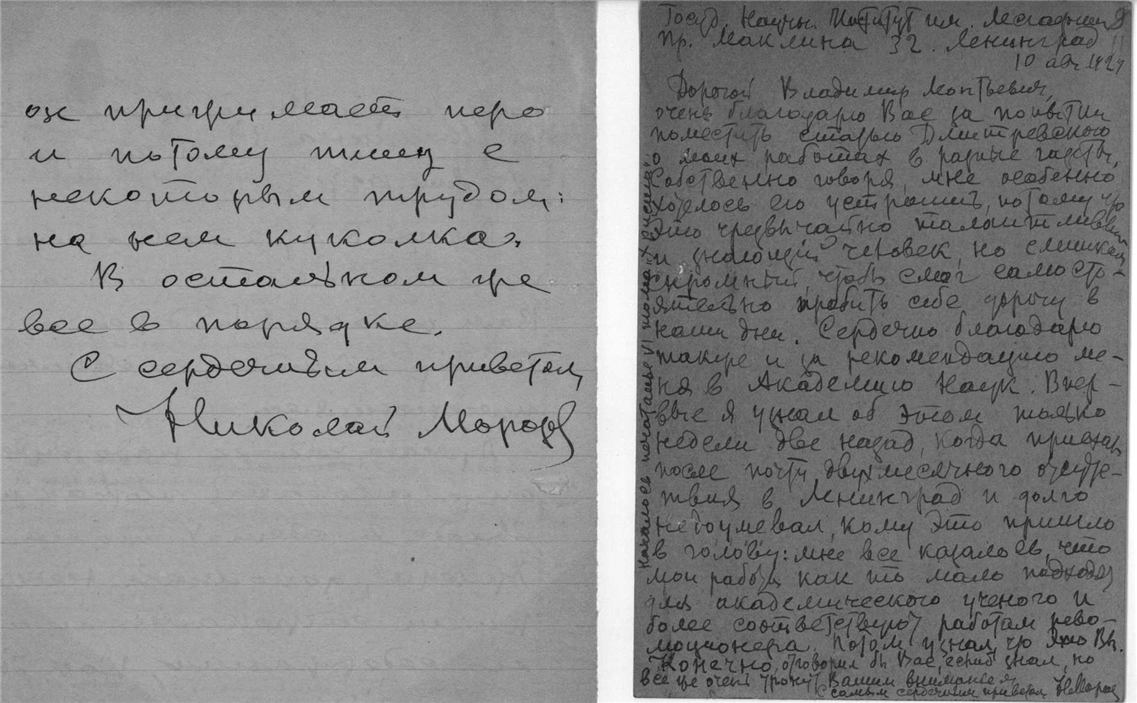 он прижимает перо
и потому пишу с
некоторым трудом:
на нем куколка.
В остальном же
все в порядке.
С сердечным приветом
Николай Морозов
Госуд. Научн. Институт им. Лесгафта
Пр. Маклина 32. Ленинград
10 1929
Дорогой Владимир
очень благодарю Вас за попытки
поместить статью Дмитревского
о моих работах в разные газеты,
Собственно говоря, мне особенно
хотелось его устроить, потому что
это чрезвычайно талантливый
и знающий человек, но слишком
скромный, чтобы смог самосто-
ятельно пробить себе дорогу в
наши дни. Сердечно благодарю
также и за рекомендацию ме-
ня в Академию Наук. Впер-
вые я узнал об этом только
недели две назад, когда приехал
после почти двухмесячного отсутс-
твия в Ленинград и долго
недоумевал, кому это пришло
в голову: мне все казалось, что
мои работы как то мало подходят
для академического ученого и
более соответствуют работам рево-
люционера. Потом узнал, что это Вы.
Конечно, отговорил бы Вас, если б знал, но
все же очень тронут Вашим вниманием
С самым сердечным приветом Н Мороз
Началось печатанье VI тома „Христа“